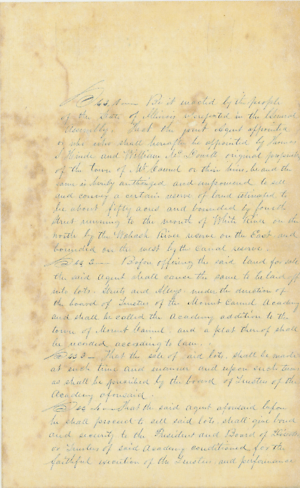 Sec 1 — Be it enacted by the people
of the State of Illinois represented in the General
Assembly. That the joint agent appointed
or who shall hereafter be appointed by Thomas
S. Hinde and William McDowell original proprietors
of the town of Mt Carmel or their heirs, be and the
same is hereby authorized and empowered to sell
and convey a certain reserve of land situated to
be about fifty acres and bounded by
street running to the mouth of White River on the
north by the Wabash River reserve on the East and
bounded on the west by the canal reserve.
Sec 2 — Before offering the said land for sale
the said Agent shall cause the same to be laid off
into lots Streets and Alleys under the direction of
the board of Trustees of the Mount Carmel Academy
and shall be called the Academy addition to the
town of Mount Carmel and a plat thereof shall
be recorded according to law.
Sec 3 — That the sale of said lots shall be made
at such time and manner and upon such terms
as shall be prescribed by the board of Trustees of the
Academy aforesaid.
Sec 4 — That the said Agent aforesaid before
he shall proceed to sell said lots shall give bond
and security to the President and Board of Trustees
or Trustees of said Academy conditioned for the
faithful execution of the Trusters and performance